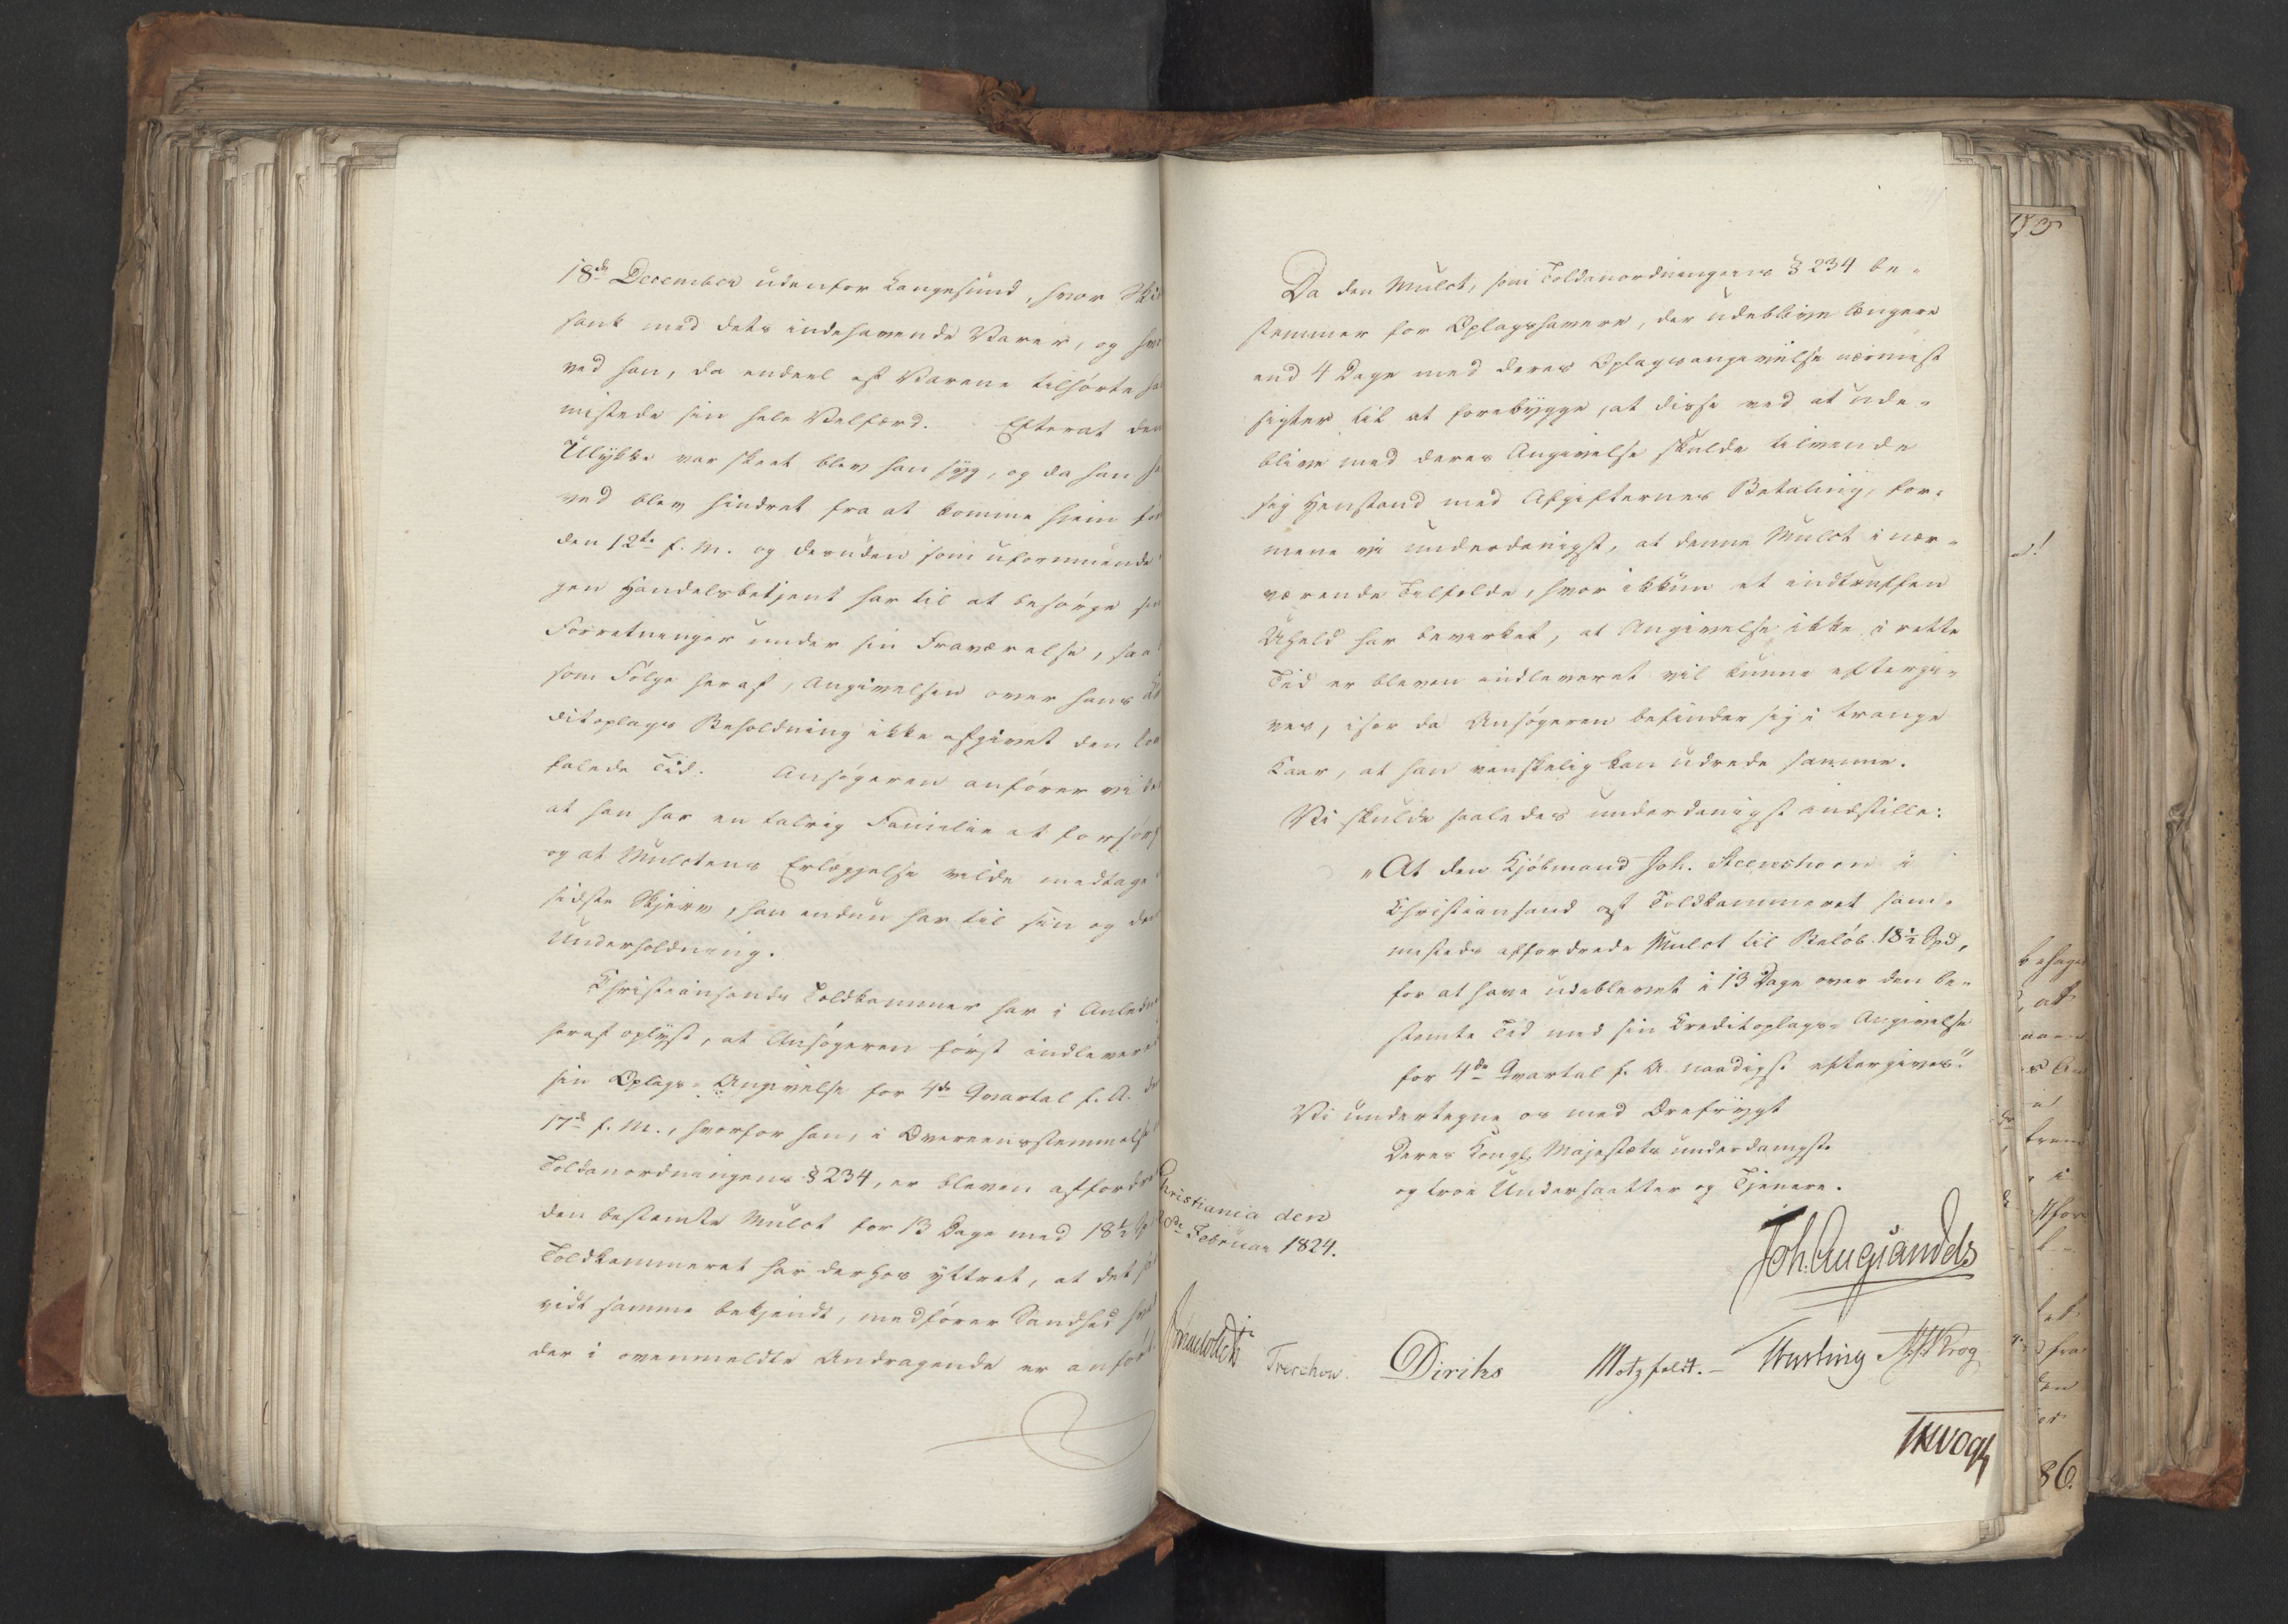 18de December udenfor Langesund, hvor Ski
sank med dets indehavende Varer, og hvor
ved han, da endeel af Varene tilhørte ha
mistede sin hele Velfærd. Efterat den
Ulykke var skeet blev han syg, og da han he
ved blev hindret fra at komme hjem før
den 12te f. M. og desuden som uformuende
gen Handelsbetjent har til at besørge sin
Forretninger under sin Fraværelse, saa
som Følge heraf, Angivelsen over hans Kre
ditoplags Beholdning ikke afgivet den be
falede Tid. Ansøgeren anfører vide
at han har en talrig Familie at forsørg
og at Mulctens Erlæggelse vilde medtage
sidste Skjerv, han endnu har til sin og de
Underholdning.
Christiansands Toldkammer har i Anledn
heraf oplyst, at Ansøgeren først indlevere
sin Oplags-Angivelse for 4de Qvartal f. A. den
17de f. M., hvorfor han, i Overeensstemmelse
Toldanordningens § 234, er bleven affordre
den bestemte Mulct for 13 Dage med 18½ Sp
Toldkammeret har derhos yttret, at det saa
vidt samme bekjendt, medfører Sandhed hvad
der i ovenmeldte Andragende er anført.
Da den Mulct, som Toldanordningens § 234 be-
stemmer for Oplagshavere, der udeblive længere
end 4 Dage med deres Oplagsangivelse nærmest
sigter til at forebygge, at disse ved at ude-
blive med deres Angivelse skulde tilvende
sig Henstand med Afgifternes Betaling, for-
mene vi underdanigst, at denne Mulct i nær-
værende Tilfælde, hvor ikkun et indtruffen
Uheld har bevirket, at Angivelse ikke i rette
Tid er bleven indleveret vil kunne eftergi-
ves, især da Ansøgeren befinder sig i trange
Kaar, at han vanskelig kan udrede samme.
Vi skulde saaledes underdanigst indstille:
"At den Kjøbmand Joh. Steenshorn i
Christiansand af Toldkammeret sam-
mesteds affordrede Mulct til Beløb 18½ Spd,
for at have udeblevet i 13 Dage over den be-
stemte Tid med sin Creditoplags-Angivelse
for 4de Qvartal f. A. naadigst eftergives."
Vi undertegne os med Ærefrygt
Deres Kongl. Majestæts underdanigste
og troe Undersaatter og Tjenere.
Christiania den
Februar 1824.
Joh. Aug. Sandels
Sommerhielm
Treschow. Diriks Motzfeldt. Krog